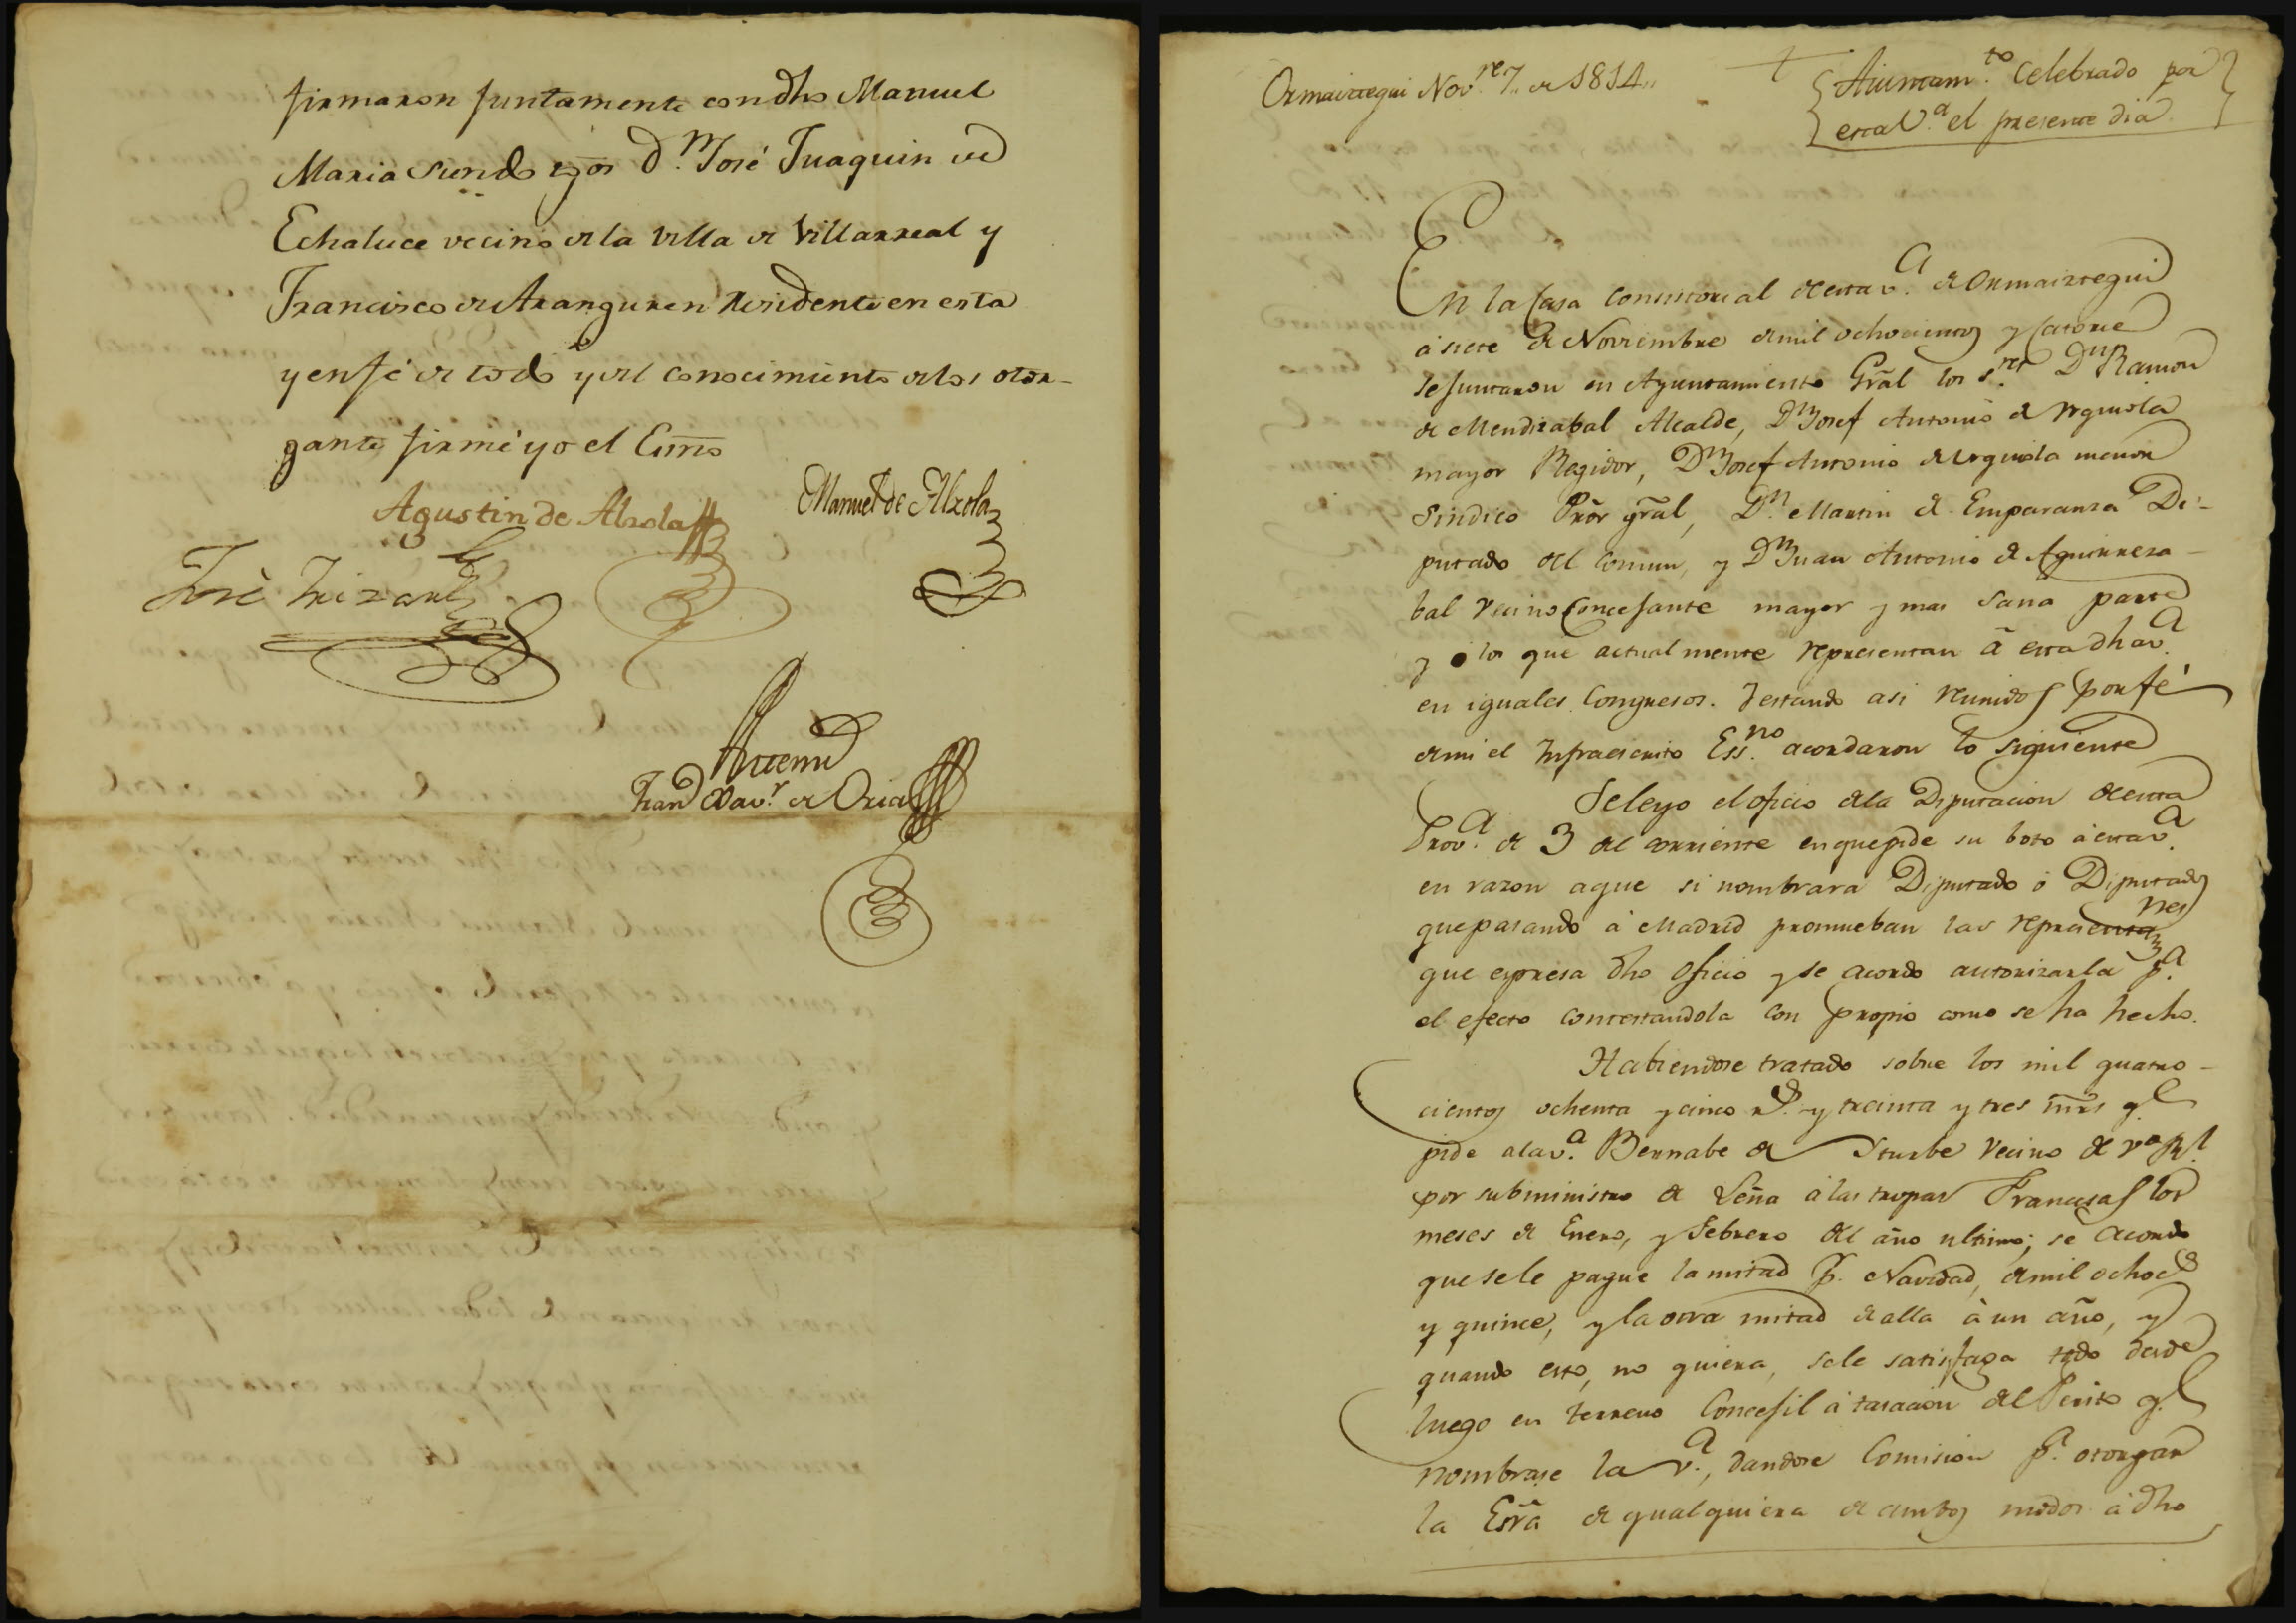 firmaron juntamente con dho Manuel
Maria siendo tgos D.n José Juaquin de
Echaluce vecino de la Villa de Villarreal y
Francisco de Aranguren Residente en esta
y en fé de todo y del conocimiento de los otor-
gantes firmé yo el Esrno
Agustin de Alzola
Manuel de Alzola
José Irizar
Antemi
Fran.co Xav.r de Oria
Ormaiztegui Nov.re 7,, de 1814,,
Aiuntam.to Celebrado por
esta V.a el presente dia
En la Casa Consistorial de esta v.a de Ormaiztegui
á siete de Noviembre de mil ochocientos y Catorce
se juntaron en Ayuntamiento Gral los S.res D.n Ramon
de Mendizabal Alcalde, D.n Josef Antonio de Urguiola
mayor Regidor, D.n Josef Antonio de Urguiola menor
Sindico Pror gral, D.n Martin de Emparanza Di-
putado del Comun, y D.n Juan Antonio de Aguirreza-
bal Vecino Concejante mayor y mas Sana parte
y los que actualmente representan á esta dha v.a
en iguales Congresos. Y estando asi reunidos por fé
de mi el Infraescrito Ess.no acordaron lo siguiente
Se leyo el oficio de la Diputacion de esta
Prov.a de 3 del corriente en que pide su boto á esta v.a
en razon a que si nombrara Diputado ó Diputados
que pasando á Madrid promueban las representanes
que espresa dho oficio y se acordo autorizarla p.a
el efecto contestandola con propio como se ha hecho.
Habiendose tratado sobre los mil quatro-
cientos ochenta y cinco r.s y treinta y tres mrs q.e
pide a la v.a Bernabe de Iturbe Vecino de V.a R.l
por subministro de Leña á las tropas Francesas los
meses de Enero, y Febrero del año ultimo; se acordo
que se le pague la mitad p.r Navidad, de mil ochoc.s
y quince, y la otra mitad de alla á un año, y
quando esto, no quiera, se le satisfaga todo desde
luego en terreno Concejil á tasacion del Perito q.e
nombrase la v.a, dandose Comision p.a otorgar
la Esrã de qualquiera de ambos modos á dho